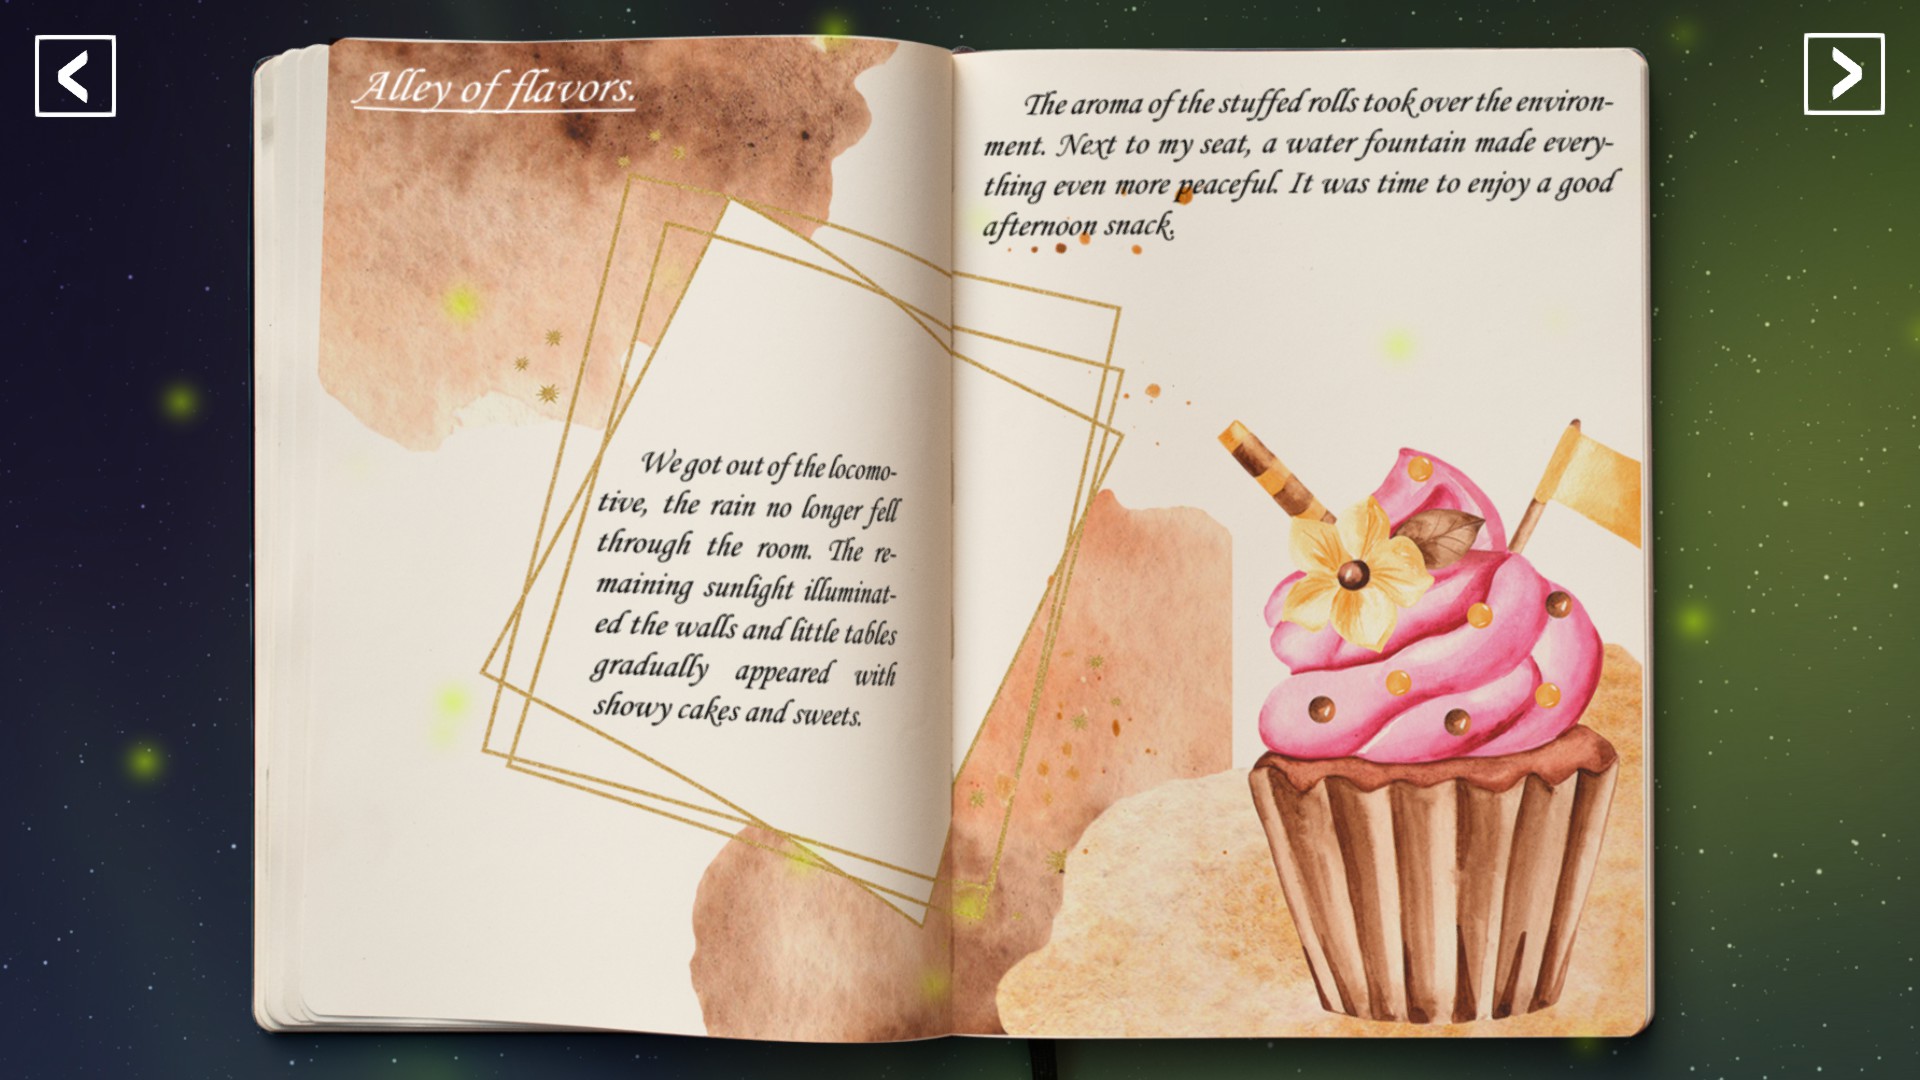 Alley of flavors.
We got out of the locomo-
tive, the rain no longer fell
through the room. The re-
maining sunlight illuminat-
ed the walls and little tables
gradually appeared with
showy cakes and sweets.
The aroma of the stuffed rolls took over the environ-
ment. Next to my seat, a water fountain made every-
thing even more peaceful. It was time to enjoy a good
afternoon snack.